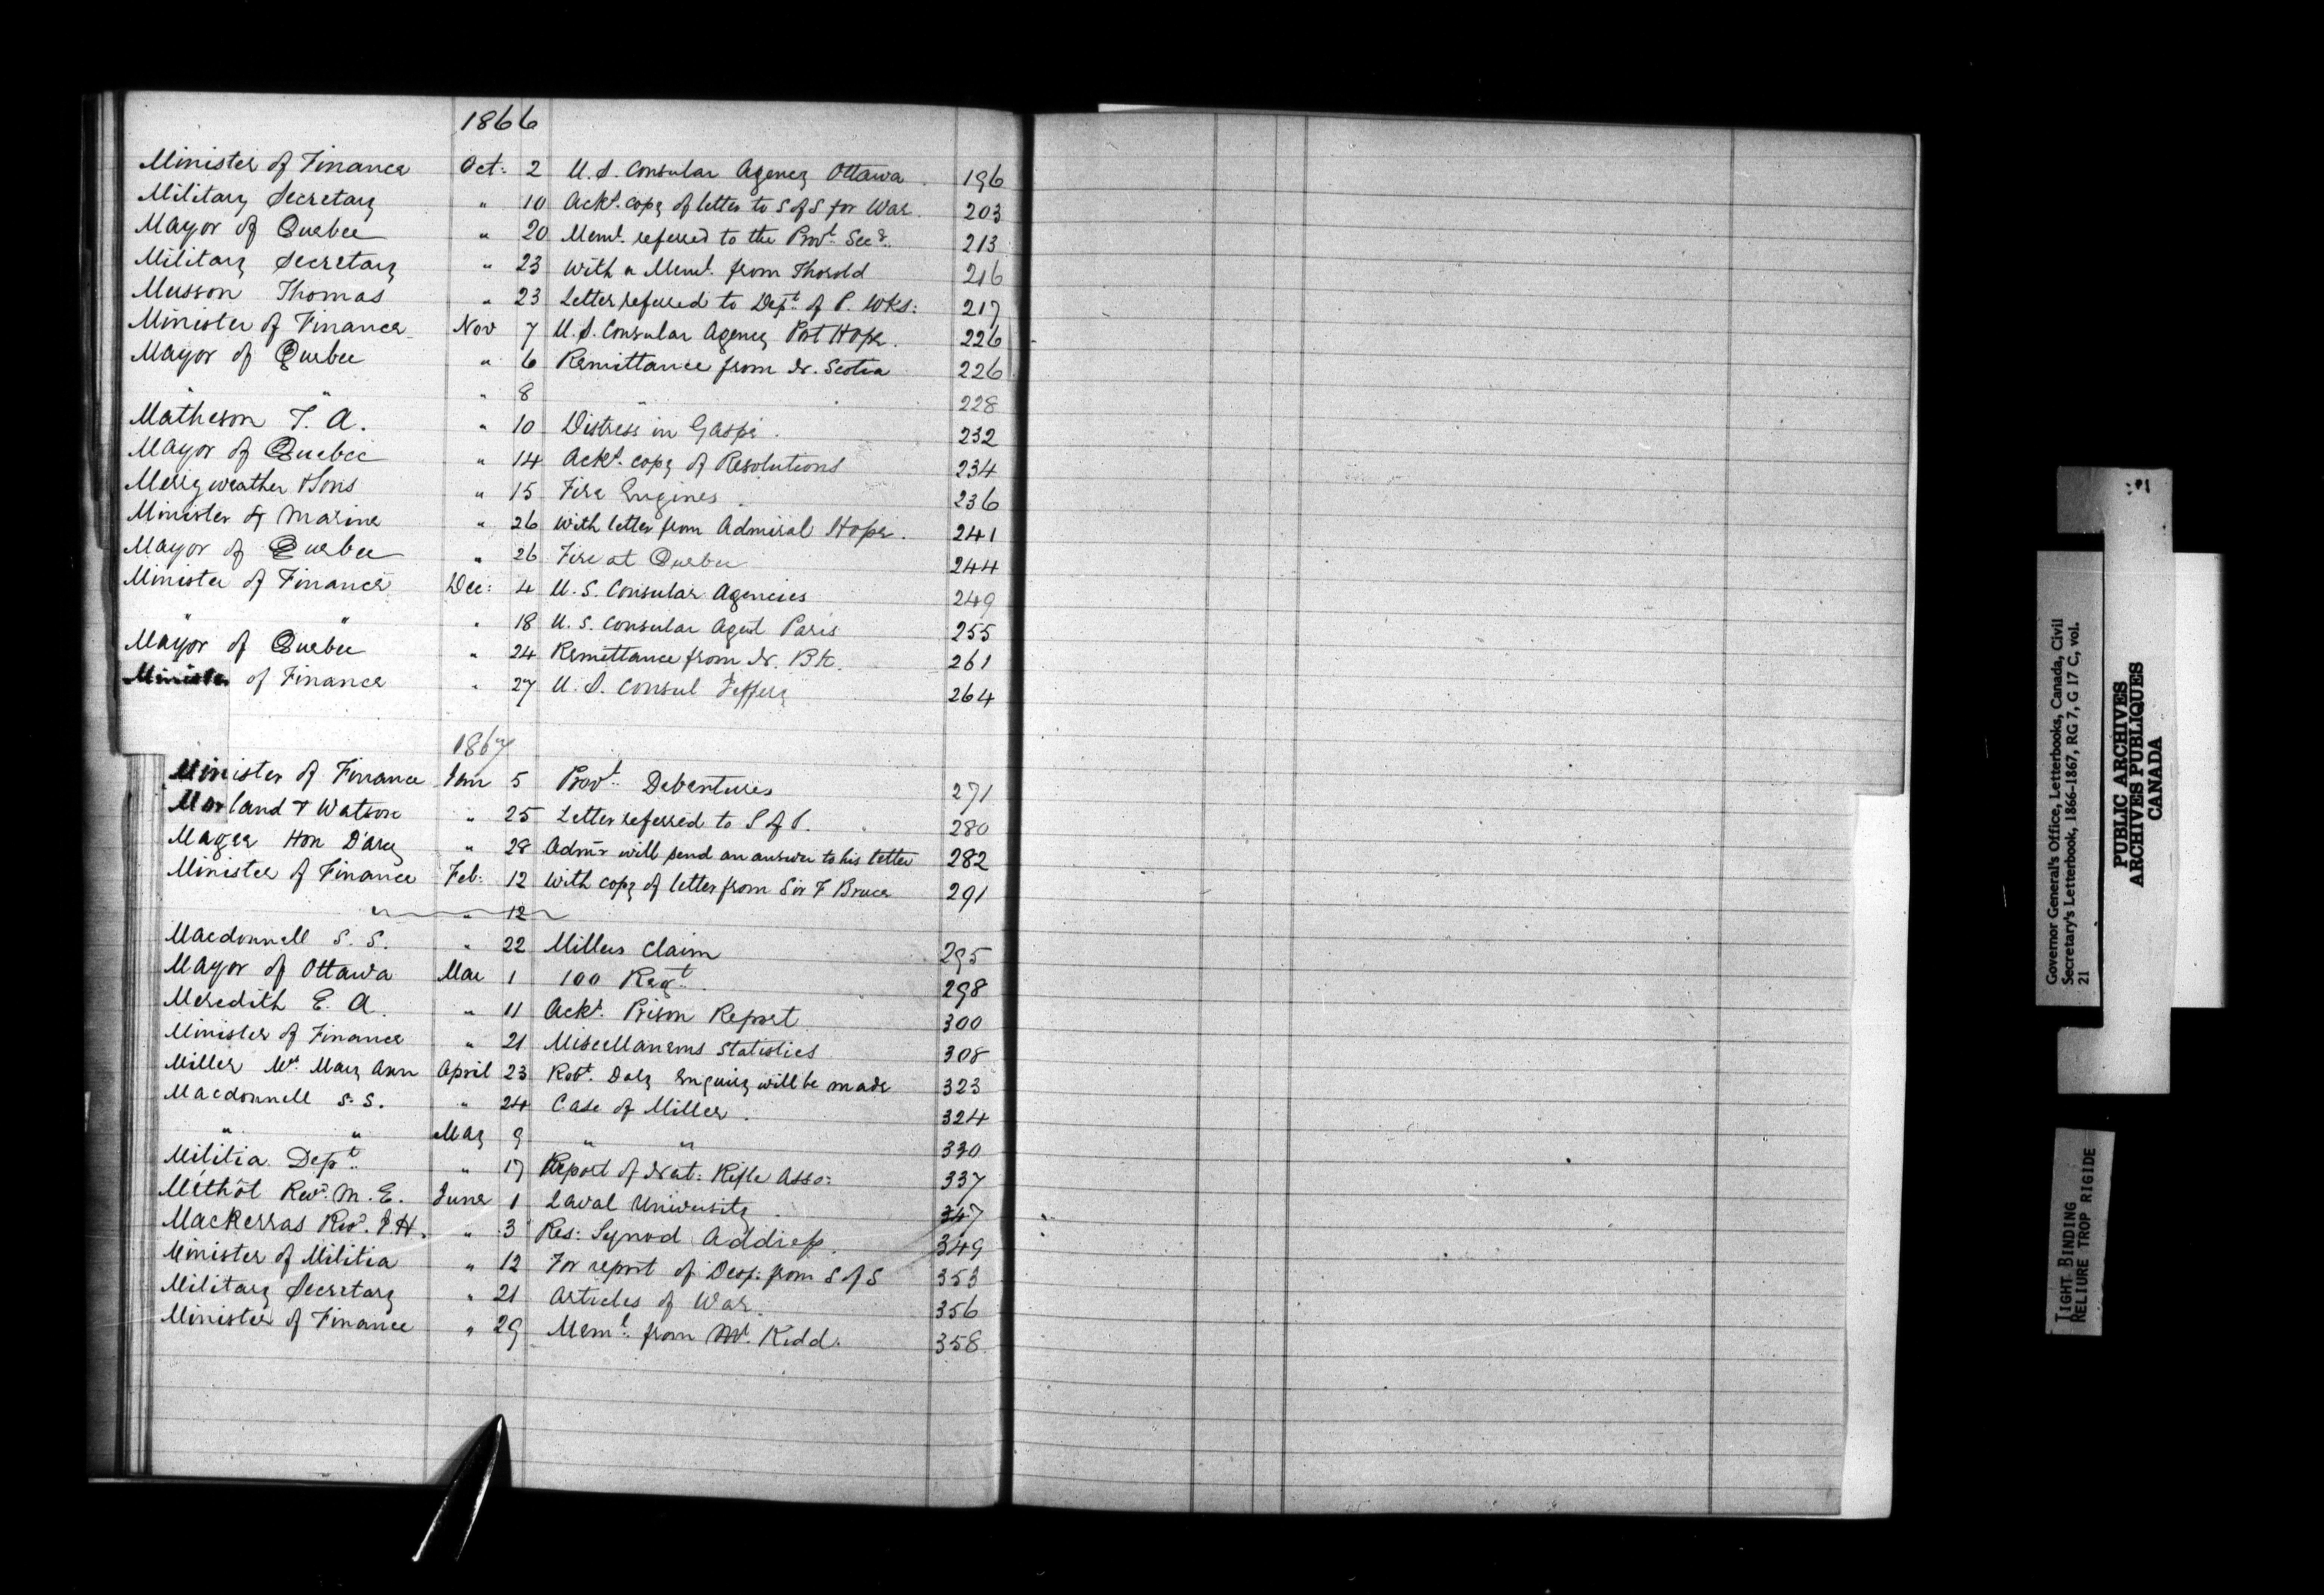 1866
Minister of Finance Oct: 2 U.S. Consular Agency Ottawa 196
Military Secretary " 10 Ackt. copy of letter to S of S for War. 203
Mayor of Quebec " 20 Meml. referred to the Provl. Secy. 213
Military Secretary " 23 With a Meml. from Thorold 216
Musson Thomas " 23 Letter referred to Dept. of P. Wks: 217
Minister of Finance Nov 7 U.S. Consular Agency Port Hope. 226
Mayor of Quebec " 6 Remittance from N. Scotia 226
" " 8 " 228
Matheson T. A. " 10 Distress in Gaspé. 232
Mayor of Quebec " 14 Ackt. copy of Resolutions 234
Merryweather & Sons " 15 Fire Engines. 236
Minister of Marine " 26 with letter from Admiral Hope. 241
Mayor of Quebec " 26 Fire at Quebec 244
Minister of Finance Dec: 4 U.S. Consular Agencies 249
" " " 18 U.S. Consular Agent Paris 255
Mayor of Quebec " 24 Remittance from N. Bk. 261
Minister of Finance " 27 U.S. Consul Jeffery 264
1867
Minister of Finance Jan 5 Provl. Debentures 271
Morland & Watson " 25 Letter referred to S of P. 280
Magee Hon D'arcy " 28 Admr. will send an answer to his letter 282
Minister of Finance Feb: 12 With copy of letter from Sir F Bruce 291
" " 12
Macdonnell S. S. " 22 Millers Claim 295
Mayor of Ottawa Mar 1 100 Regt. 298
Meredith E. A. " 11 Ackt. Prison Report 300
Minister of Finance " 21 Miscellaneous Statistics 308
Miller Mrs. Mary Ann April 23 Robt. Daly Enquiry will be made 323
Macdonnell S. S. " 24 Case of Miller. 324
" " May 9 " " 330
Militia Dept. " 17 Report of Nat: Rifle Asso: 337
Méthôt Revd. M. E. June 1 Laval University. 347
Mackerras Revd. J. H. " 3 Res: Synod Address. 349
Minister of Militia " 12 For report of Desp: from S of S 353
Military Secretary " 21 Articles of War. 356
Minister of Finance " 29 Meml. from Mr. Kidd. 358
Governor General's Office, Letterbooks, Canada, Civil
Secretary's Letterbook, 1866-1867, RG 7, G 17 C, vol.
21
PUBLIC ARCHIVES
ARCHIVES PUBLIQUES
CANADA
TIGHT BINDING
RELIURE TROP RIGIDE